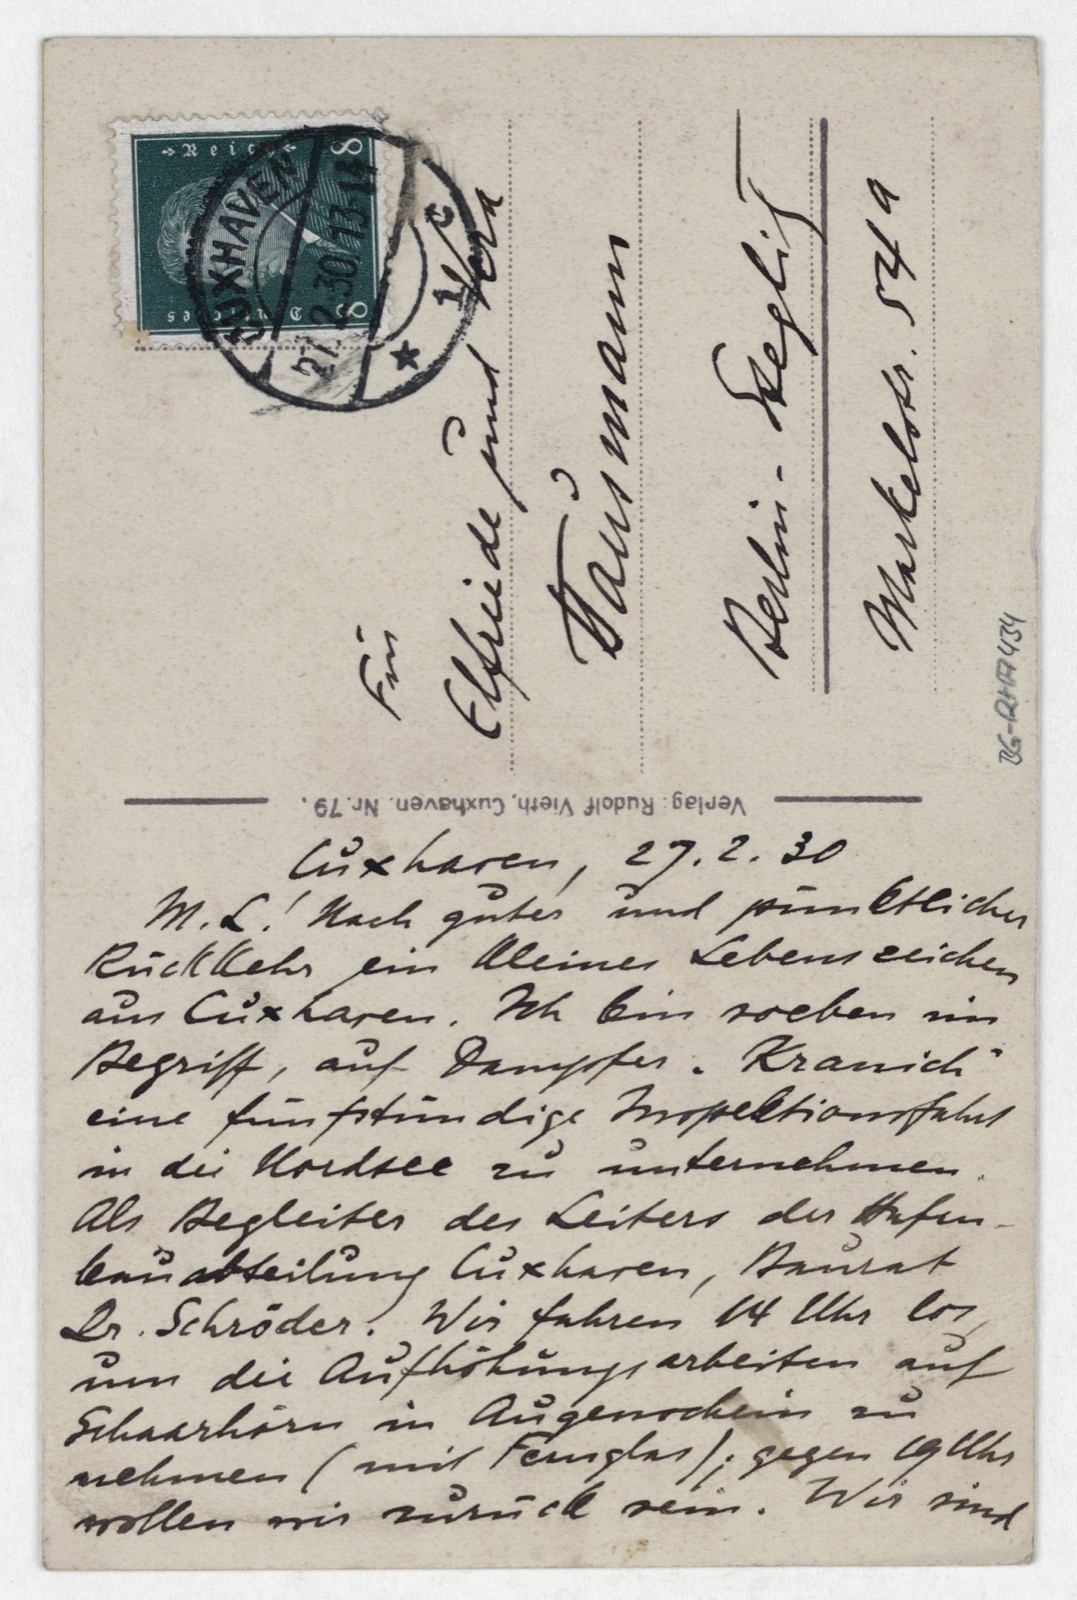 Deutsches Reich
8 8
CUXHAVEN
27.2.30.13-14
* 1c
Für
Elfriede und Vera
Hausmann
Berlin-Steglitz
Markelstr. 54 a
BG-RHA 434
Verlag: Rudolf Vieth, Cuxhaven. Nr. 79.
Cuxhaven, 27.2.30
M. L.! Nach guter und pünktlicher
Rückkehr ein kleines Lebenszeichen
aus Cuxhaven. Ich bin soeben im
Begriff, auf Dampfer „Kranich"
eine fünfstündige Inspektionsfahrt
in die Nordsee zu unternehmen.
Als Begleiter des Leiters der Hafen-
bauabteilung Cuxhaven, Baurat
Dr. Schröder. Wir fahren 14 Uhr los,
um die Aufhöhungsarbeiten auf
Schaarhörn in Augenschein zu
nehmen (mit Fernglas); gegen 19 Uhr
wollen wir zurück sein. Wir sind